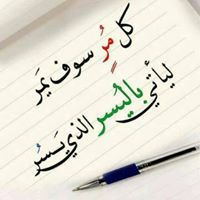 كل مُرٍ سوف يَمَر
ليأتي باليُسرِ الذي يَسُر